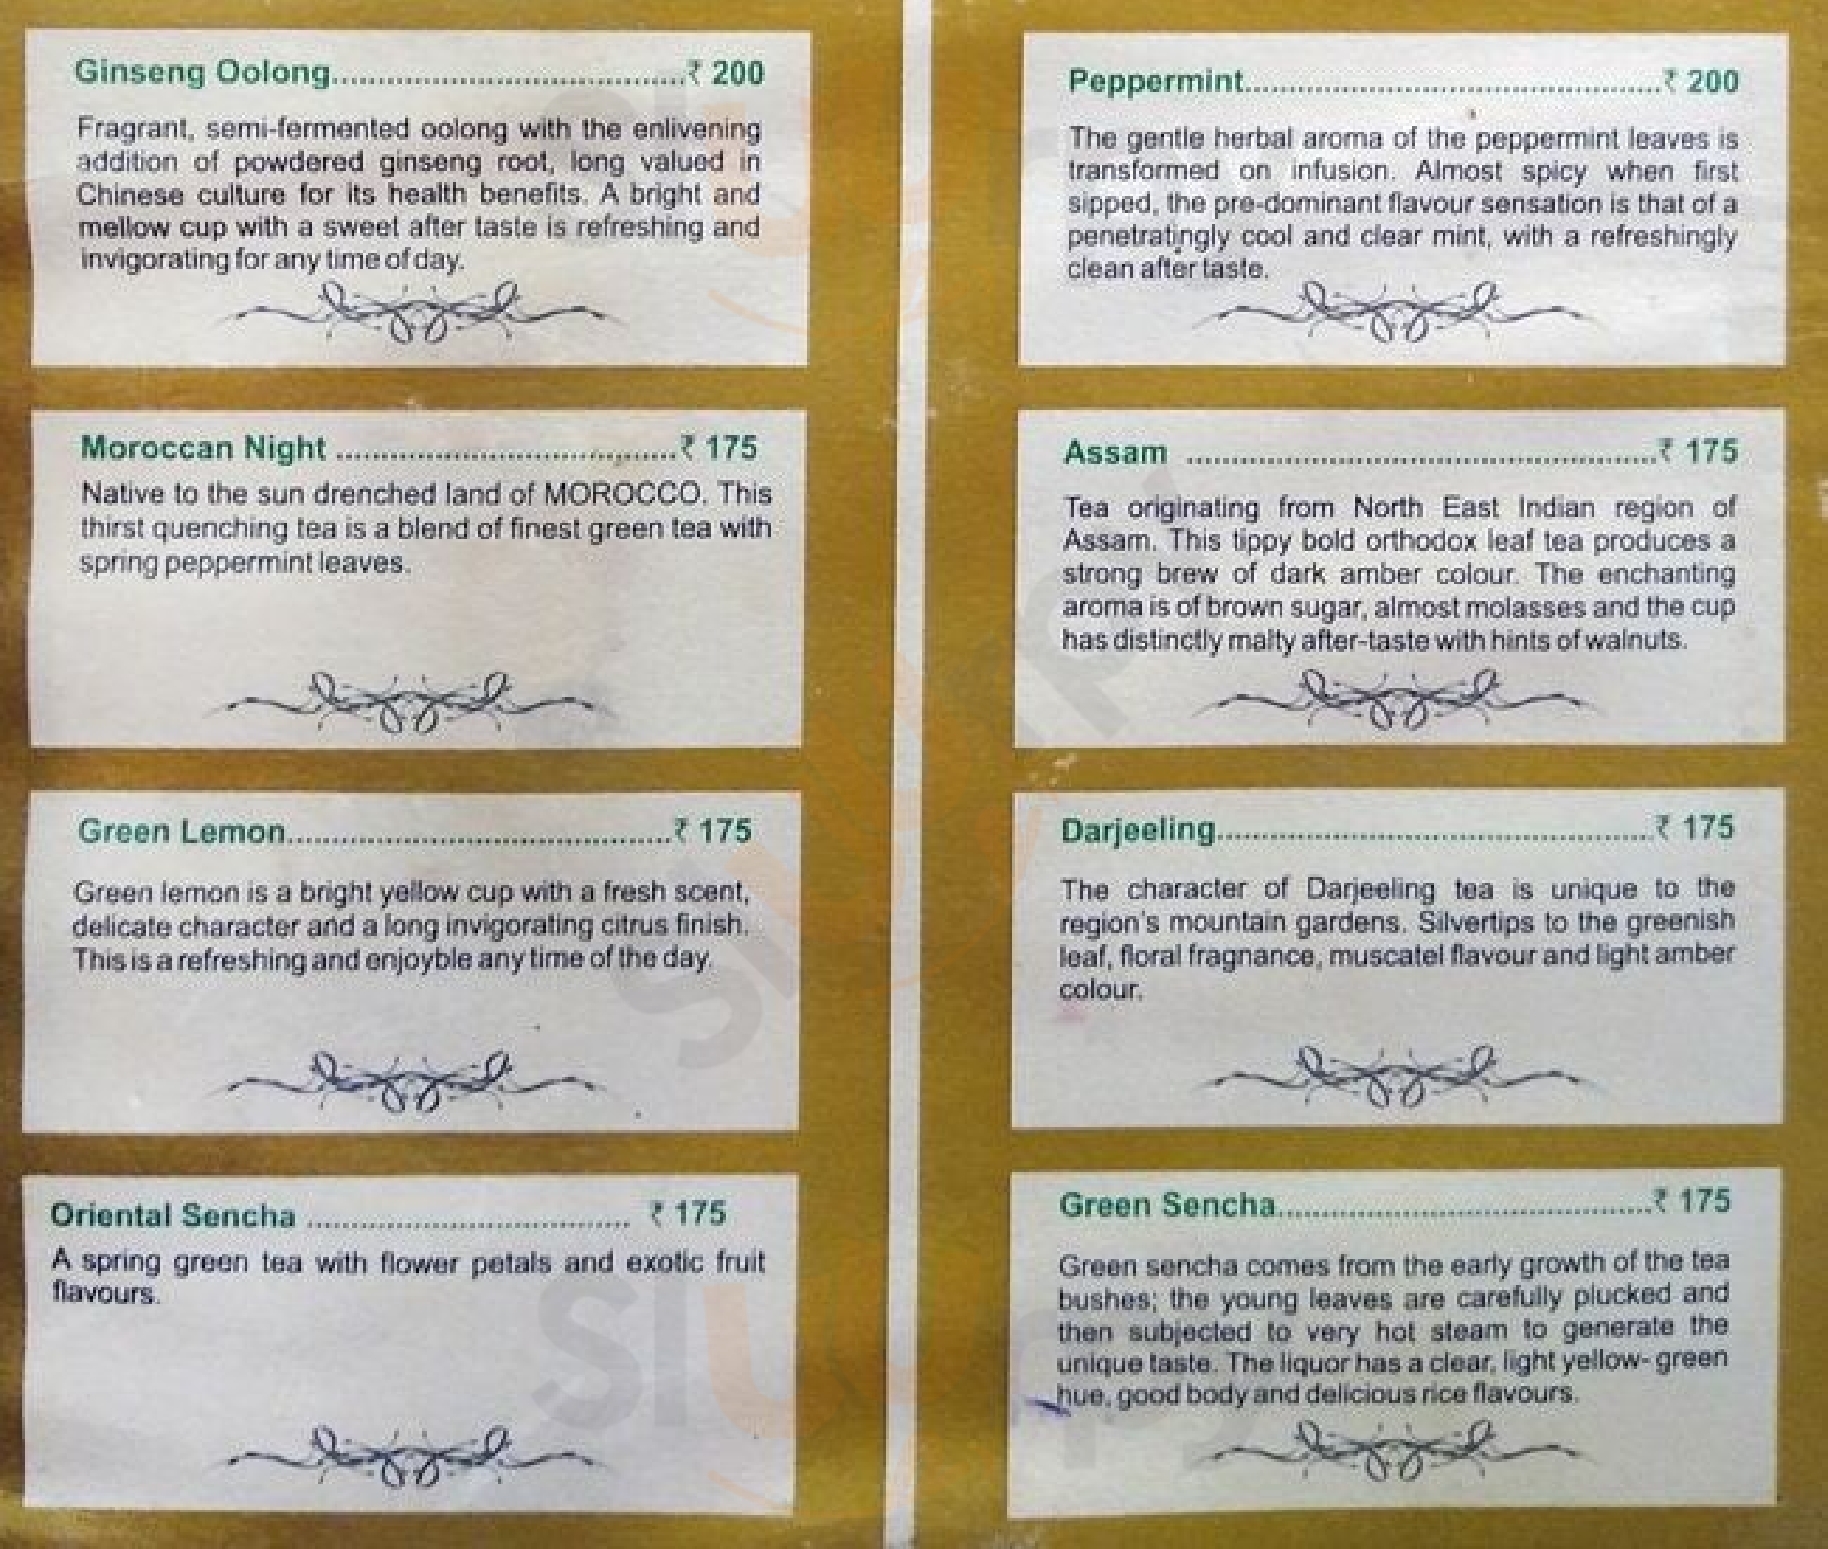 Ginseng Oolong.......................................₹ 200
Fragrant, semi-fermented oolong with the enlivening
addition of powdered ginseng root, long valued in
Chinese culture for its health benefits. A bright and
mellow cup with a sweet after taste is refreshing and
invigorating for any time of day.
Moroccan Night ......................................₹ 175
Native to the sun drenched land of MOROCCO. This
thirst quenching tea is a blend of finest green tea with
spring peppermint leaves.
Green Lemon...........................................₹ 175
Green lemon is a bright yellow cup with a fresh scent,
delicate character and a long invigorating citrus finish.
This is a refreshing and enjoyble any time of the day.
Oriental Sencha .................................... ₹ 175
A spring green tea with flower petals and exotic fruit
flavours.
Peppermint..............................................₹ 200
The gentle herbal aroma of the peppermint leaves is
transformed on infusion. Almost spicy when first
sipped, the pre-dominant flavour sensation is that of a
penetratingly cool and clear mint, with a refreshingly
clean after taste.
Assam ....................................................₹ 175
Tea originating from North East Indian region of
Assam. This tippy bold orthodox leaf tea produces a
strong brew of dark amber colour. The enchanting
aroma is of brown sugar, almost molasses and the cup
has distinctly malty after-taste with hints of walnuts.
Darjeeling................................................₹ 175
The character of Darjeeling tea is unique to the
region's mountain gardens. Silvertips to the greenish
leaf, floral fragnance, muscatel flavour and light amber
colour.
Green Sencha.........................................₹ 175
Green sencha comes from the early growth of the tea
bushes; the young leaves are carefully plucked and
then subjected to very hot steam to generate the
unique taste. The liquor has a clear, light yellow- green
hue, good body and delicious rice flavours.